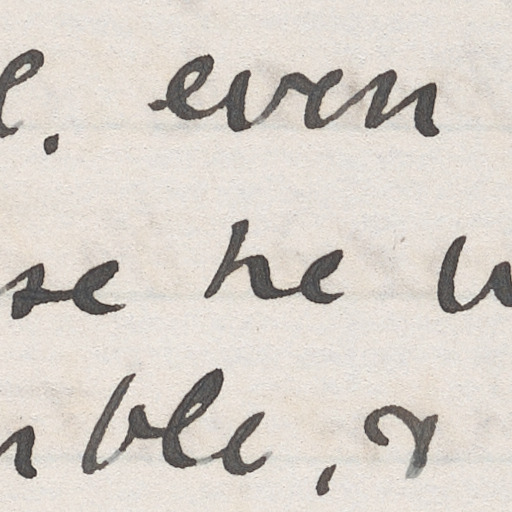 e. even
se he w
ble, &